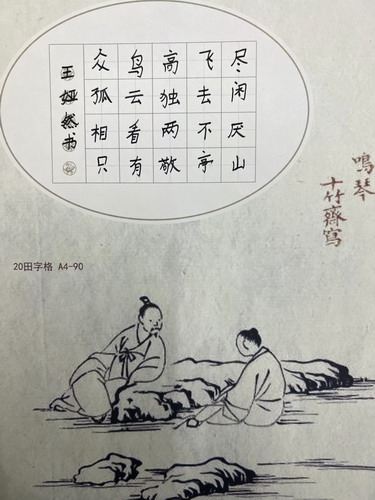 众鸟高飞尽
孤云独去闲
相看两不厌
只有敬亭山
王娅然书
鳴琴
十竹齋寫
20田字格 A4-90